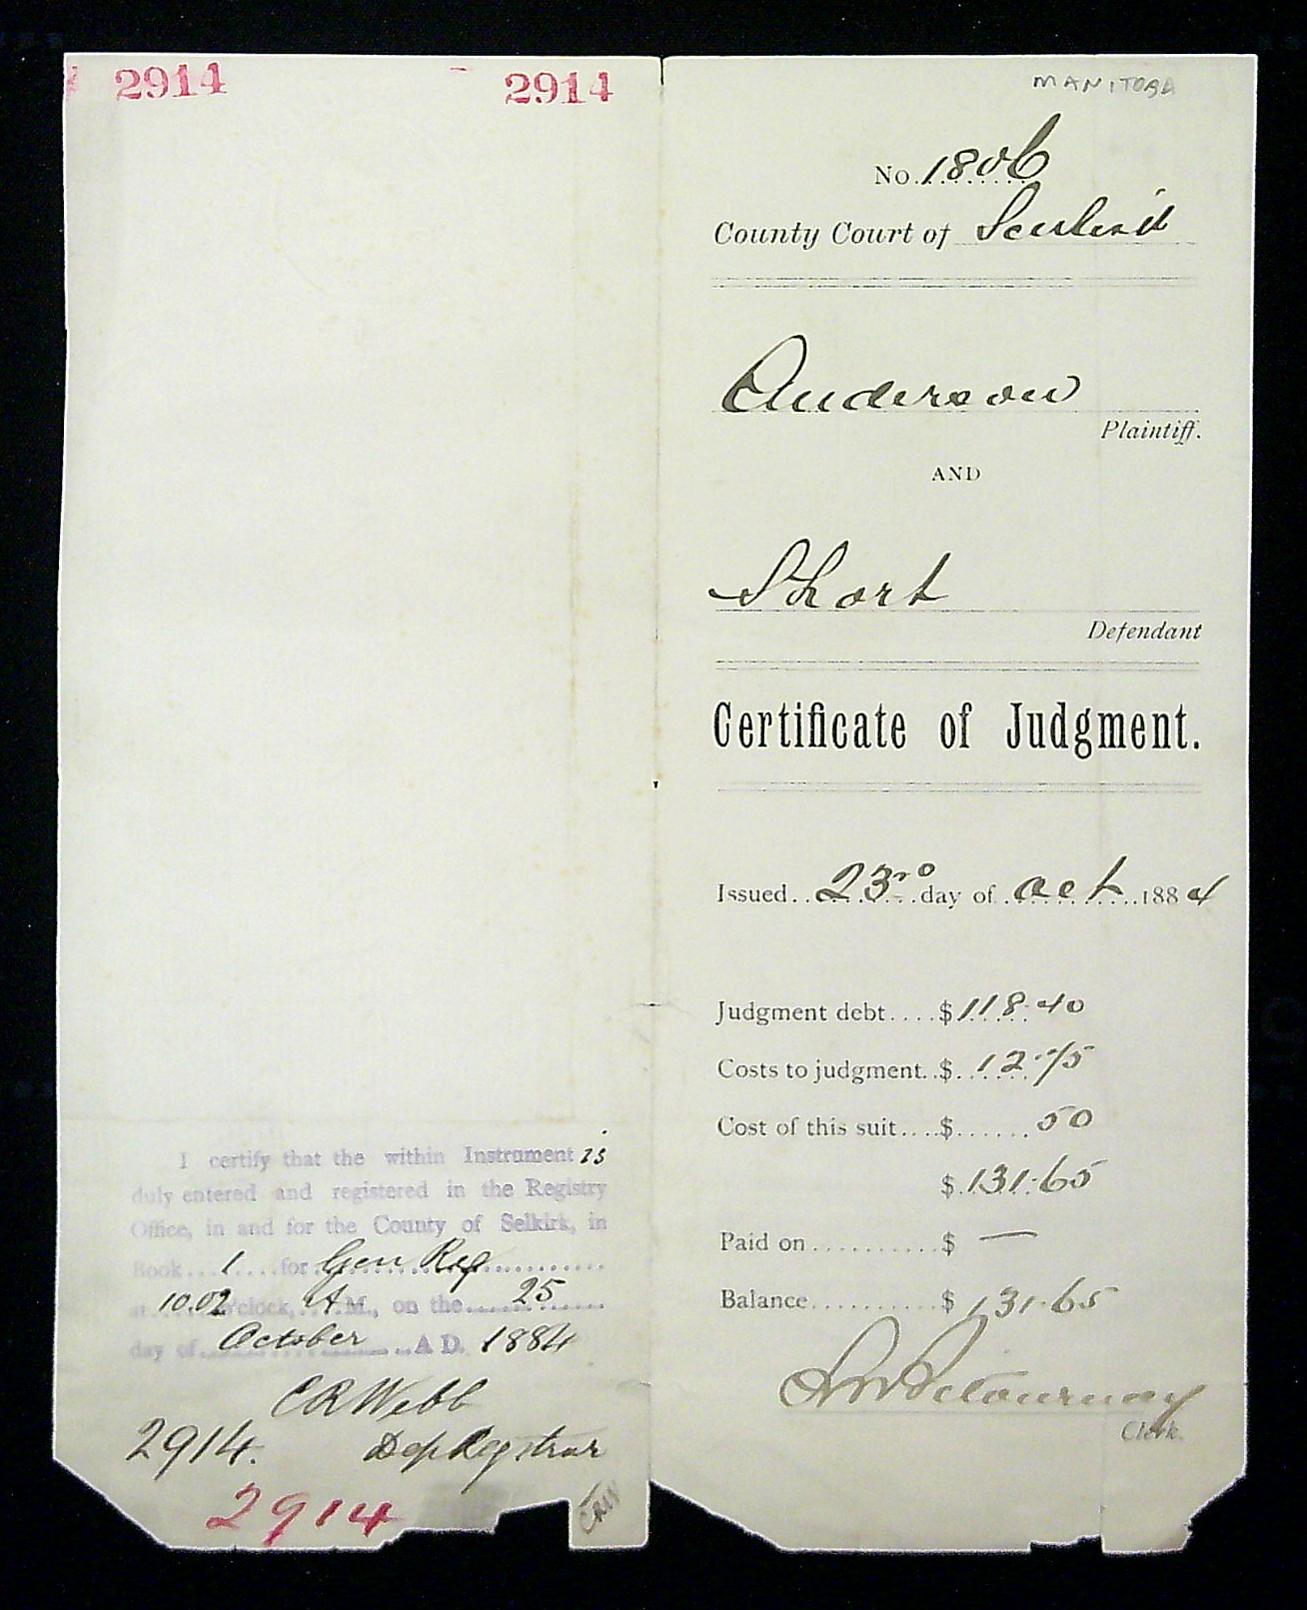 2914 2914
I certify that the within Instrument is
duly entered and registered in the Registry
Office, in and for the County of Selkirk, in
Book....1....for Gen Reg..............
at 10.02 o'clock, A.M., on the.......25.......
day of October A D. 1884
C R Webb
2914. Dep Registrar
2914
MANITOBA
No. 1806
County Court of
Anderson
Plaintiff.
AND
Short
Defendant
Certificate of Judgment.
Issued..23rd..day of..Oct..1884
Judgment debt....$118.40
Costs to judgment..$.12.75
Cost of this suit....$......50
$.131.65
Paid on...........$ —
Balance...........$ 131.65
Clerk.